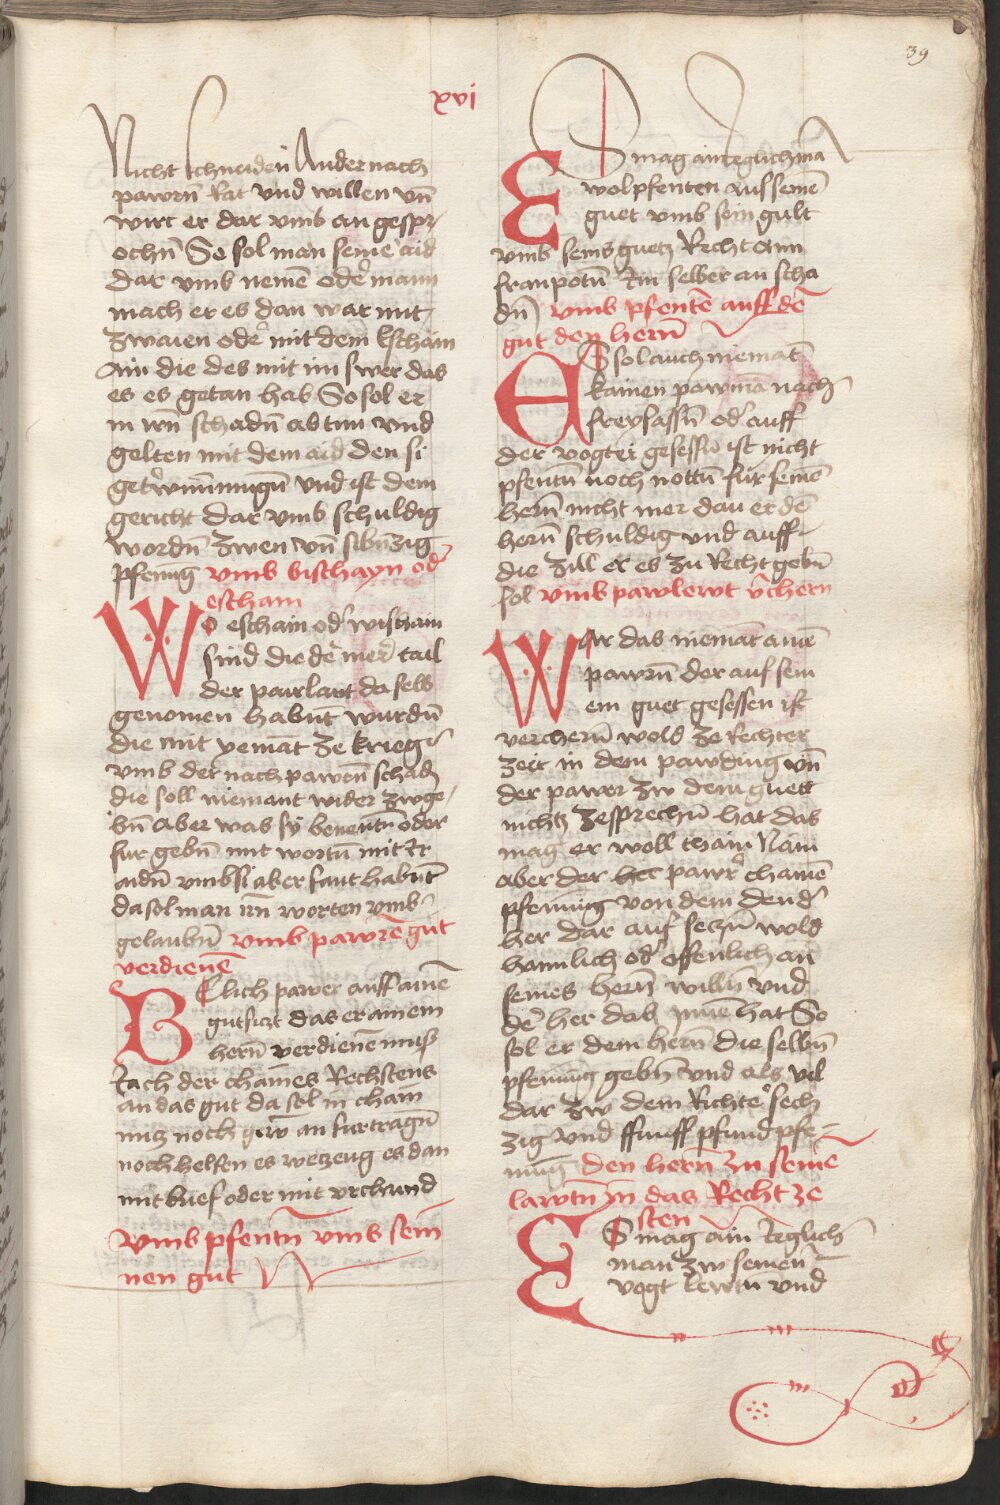 39
xvi
Nicht schneiden Ander nach
pawrn̄ Rat vnd willen vn̄
wirt er dar vmb an gespr
ochn̄ So sol man seinē aid
dar vmb nemē oder mann
mach er es dan war mit
zwaien oder mit dem eschain
ain die des mit im swer das
es es getan hab So sol er
in wn̄ schadn̄ ab tun vnd
gelten mit dem aid den si
vnd ist dem
gericht dar vmb schuldig
wordn̄ zwen vn̄ sibnzig
pfening vmb bischayn oder
escham
Wo eschain oder wischain
sind die de mer tail
der pawrlawt da selb
genomen habnt wurdn̄
die mit yemāt ze krieg
vmb der nach pawrn̄ schadn̄
die soll niemant wider zwge
bn̄ aber was sy benentn̄ oder
fur gebn̄ mit wortn̄ mit Ir
aidn̄ vmb si aber fant habnt
da sol man irn̄ worten vmb
gelaubn̄ vmb pawrē gut
verdienē
Belich pawer auff ainē
gut siczt das er ainem
hern̄ verdienē muß
nach der chāmes Rechstens
an das gut da sol in chain
nutz noch gew an furtragn̄
noch helfen es weczeug es dan
mit brief oder mit vrchund
vmb pfentn̄ vmb sein
nen gut
ES mag ain ieglich mā
wol pfenten auf seinē
guet vmb sein gult
vmb seins guetz Recht ann
franpotn̄ Im selber an scha
dn̄ vmb pfentē auff dē
gut den hern̄
ES sol auch niemāt
kainen pawmā nach
freysassn̄ oder auff
der vogtei gesessn̄ ist nicht
pfentn̄ noch nottn̄ für seinē
hern̄ nicht mer dan er dē
hern̄ schuldig vnd auff
die zill er es zu Recht gebn̄
sol vmb pawlewt v̄chern
War das niemāt ainē
pawrn̄ der auf sein
em guet gesessen ist
verchern̄ wold ze Rechter
zeit in dem pawding vn̄
der pawer zw dem guett
nichtz zesprechn̄ hat das
mag er woll thain Nam
aber der her pawr chainē
pfening von dem den der
her dar auf seczn̄ wold
hainlich oder offenlich an
seines hern̄ willn̄ vnd
dē her dab inne hat So
sol er dem hern̄ die selbn̄
pfening gebn̄ vnd als vil
dar zw dem Richter sech
zig vnd ffunff pfund pfe
ning den hern̄ zu seinē
lawtn̄ in das Recht ze
sten
ES mag ain ieglich
man zw seinen̄
vogt lewtn vnd